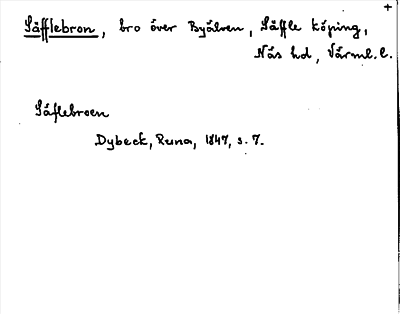 +
Säfflebron, bro över Byälven, Säffle köping,
Näs hd, Värml. l.
Säflebroen
Dybeck, Runa, 1847, s. 7.